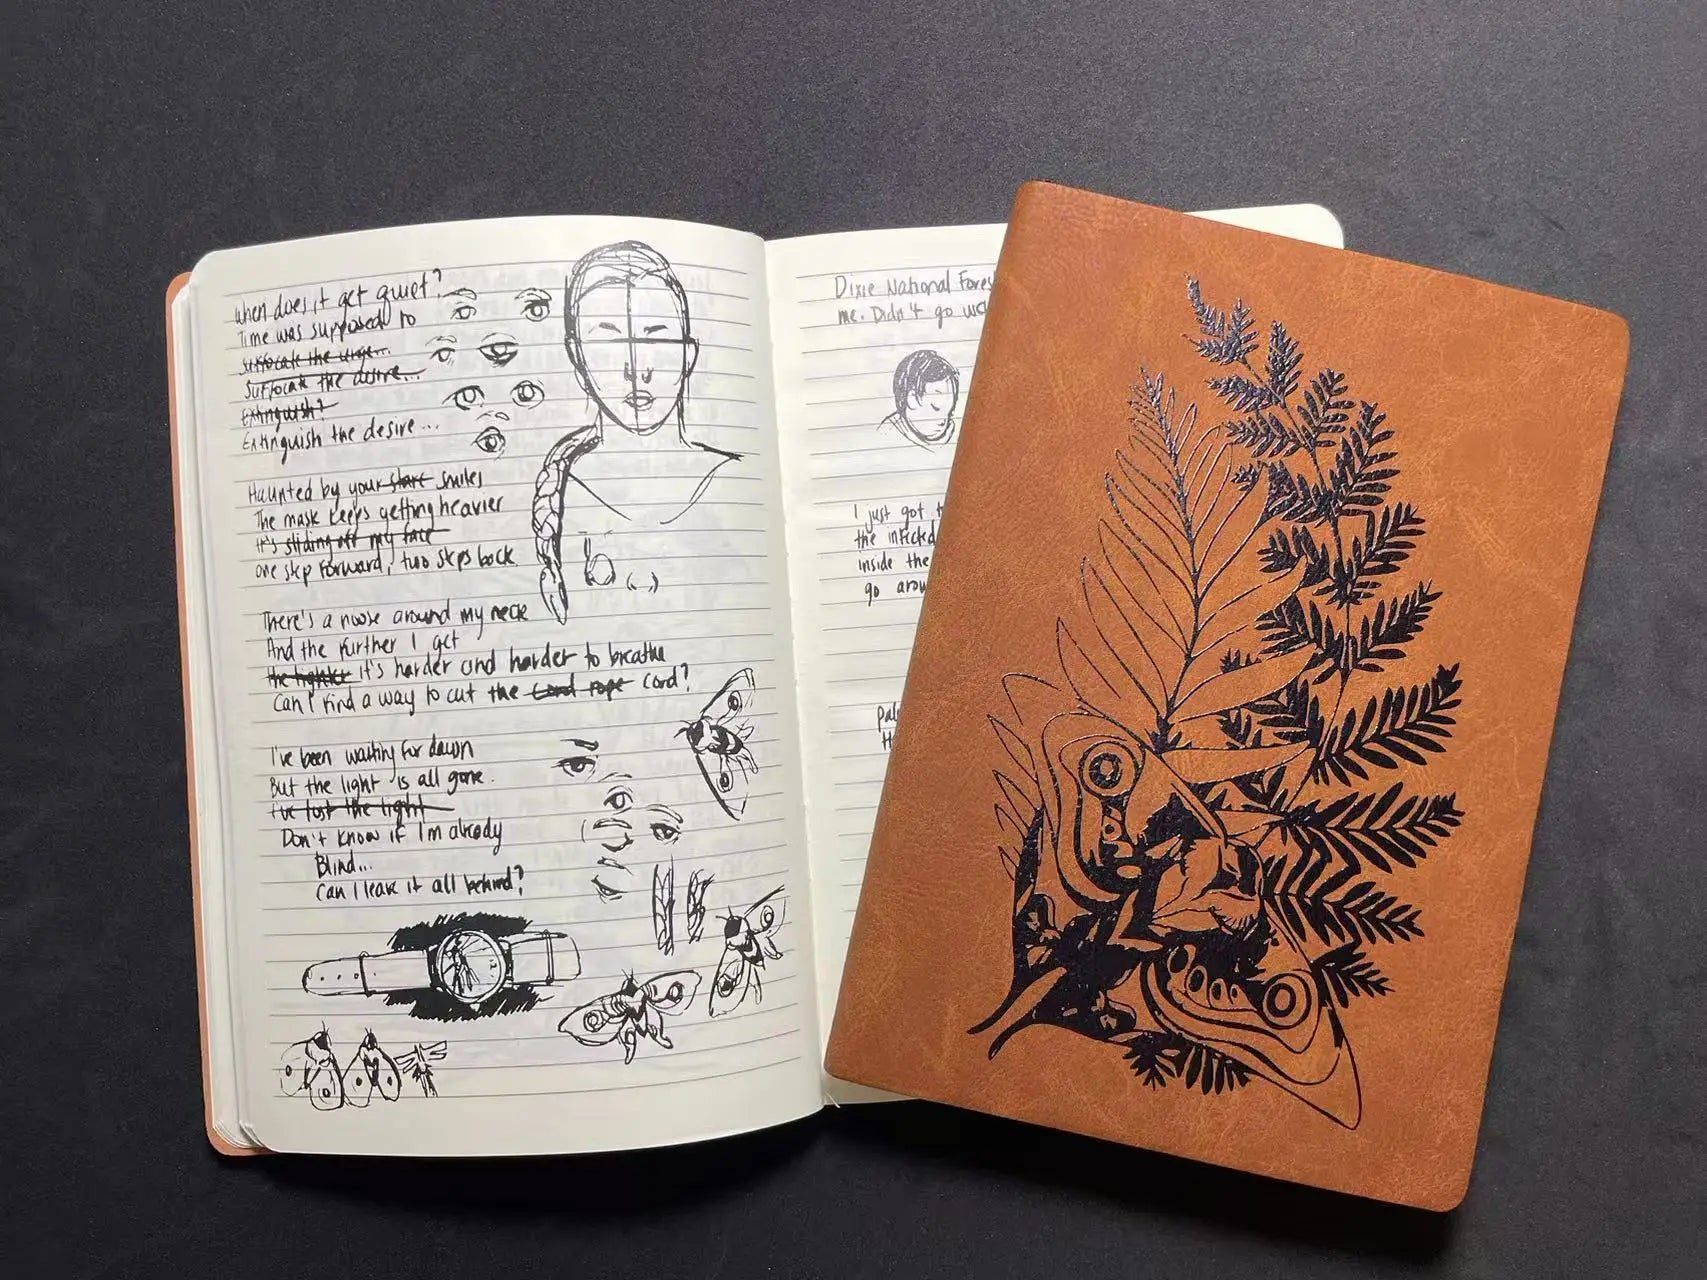 When does it get quiet?
Time was supposed to
suffocate the urge...
Suffocate the desire...
Extinguish?
Extinguish the desire...
Haunted by your stare smiles
The mask keeps getting heavier
It's sliding off my face
one step forward, two steps back
There's a noose around my neck
And the further I get
the tighter it's harder and harder to breathe
Can I find a way to cut the cord rope cord?
I've been waiting for dawn
But the light is all gone.
I've lost the light
Don't know if I'm already
Blind...
Can I leave it all behind?
Dixie National Fores
me. Didn't go
I just got
the infected
inside the
go